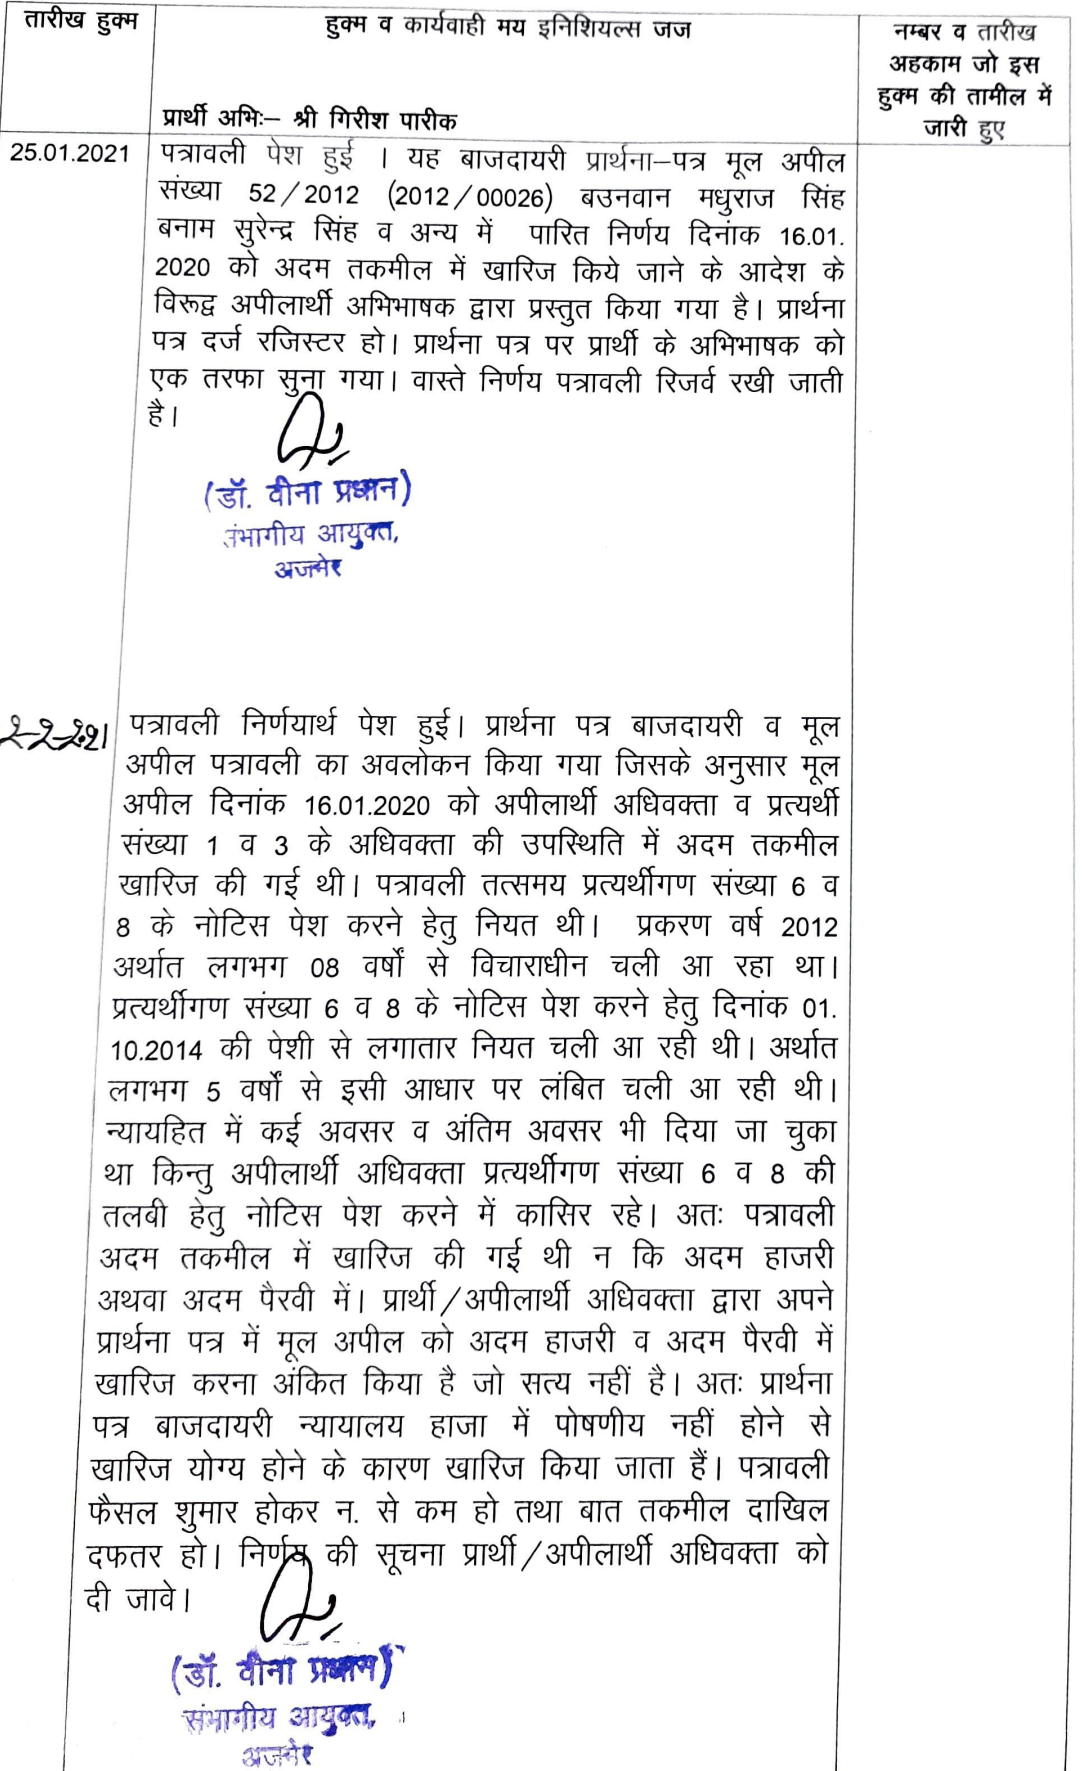 तारीख हुक्म
हुक्म व कार्यवाही मय इनिशियल्स जज
प्रार्थी अभिः– श्री गिरीश पारीक
नम्बर व तारीख
अहकाम जो इस
हुक्म की तामील में
जारी हुए
25.01.2021
पत्रावली पेश हुई । यह बाजदायरी प्रार्थना–पत्र मूल अपील
संख्या 52/2012 (2012/00026) बउनवान मधुराज सिंह
बनाम सुरेन्द्र सिंह व अन्य में पारित निर्णय दिनांक 16.01.
2020 को अदम तकमील में खारिज किये जाने के आदेश के
विरूद्व अपीलार्थी अभिभाषक द्वारा प्रस्तुत किया गया है। प्रार्थना
पत्र दर्ज रजिस्टर हो। प्रार्थना पत्र पर प्रार्थी के अभिभाषक को
एक तरफा सुना गया। वास्ते निर्णय पत्रावली रिजर्व रखी जाती
है।
(डॉ. वीना प्रधान)
संभागीय आयुक्त,
अजमेर
2-2-2021
पत्रावली निर्णयार्थ पेश हुई। प्रार्थना पत्र बाजदायरी व मूल
अपील पत्रावली का अवलोकन किया गया जिसके अनुसार मूल
अपील दिनांक 16.01.2020 को अपीलार्थी अधिवक्ता व प्रत्यर्थी
संख्या 1 व 3 के अधिवक्ता की उपस्थिति में अदम तकमील
खारिज की गई थी। पत्रावली तत्समय प्रत्यर्थीगण संख्या 6 व
8 के नोटिस पेश करने हेतु नियत थी। प्रकरण वर्ष 2012
अर्थात लगभग 08 वर्षों से विचाराधीन चली आ रहा था।
प्रत्यर्थीगण संख्या 6 व 8 के नोटिस पेश करने हेतु दिनांक 01.
10.2014 की पेशी से लगातार नियत चली आ रही थी। अर्थात
लगभग 5 वर्षों से इसी आधार पर लंबित चली आ रही थी।
न्यायहित में कई अवसर व अंतिम अवसर भी दिया जा चुका
था किन्तु अपीलार्थी अधिवक्ता प्रत्यर्थीगण संख्या 6 व 8 की
तलबी हेतु नोटिस पेश करने में कासिर रहे। अतः पत्रावली
अदम तकमील में खारिज की गई थी न कि अदम हाजरी
अथवा अदम पैरवी में। प्रार्थी/अपीलार्थी अधिवक्ता द्वारा अपने
प्रार्थना पत्र में मूल अपील को अदम हाजरी व अदम पैरवी में
खारिज करना अंकित किया है जो सत्य नहीं है। अतः प्रार्थना
पत्र बाजदायरी न्यायालय हाजा में पोषणीय नहीं होने से
खारिज योग्य होने के कारण खारिज किया जाता हैं। पत्रावली
फैसल शुमार होकर न. से कम हो तथा बात तकमील दाखिल
दफतर हो। निर्णय की सूचना प्रार्थी/अपीलार्थी अधिवक्ता को
दी जावे।
(डॉ. वीना प्रधान)
संभागीय आयुक्त,
अजमेर